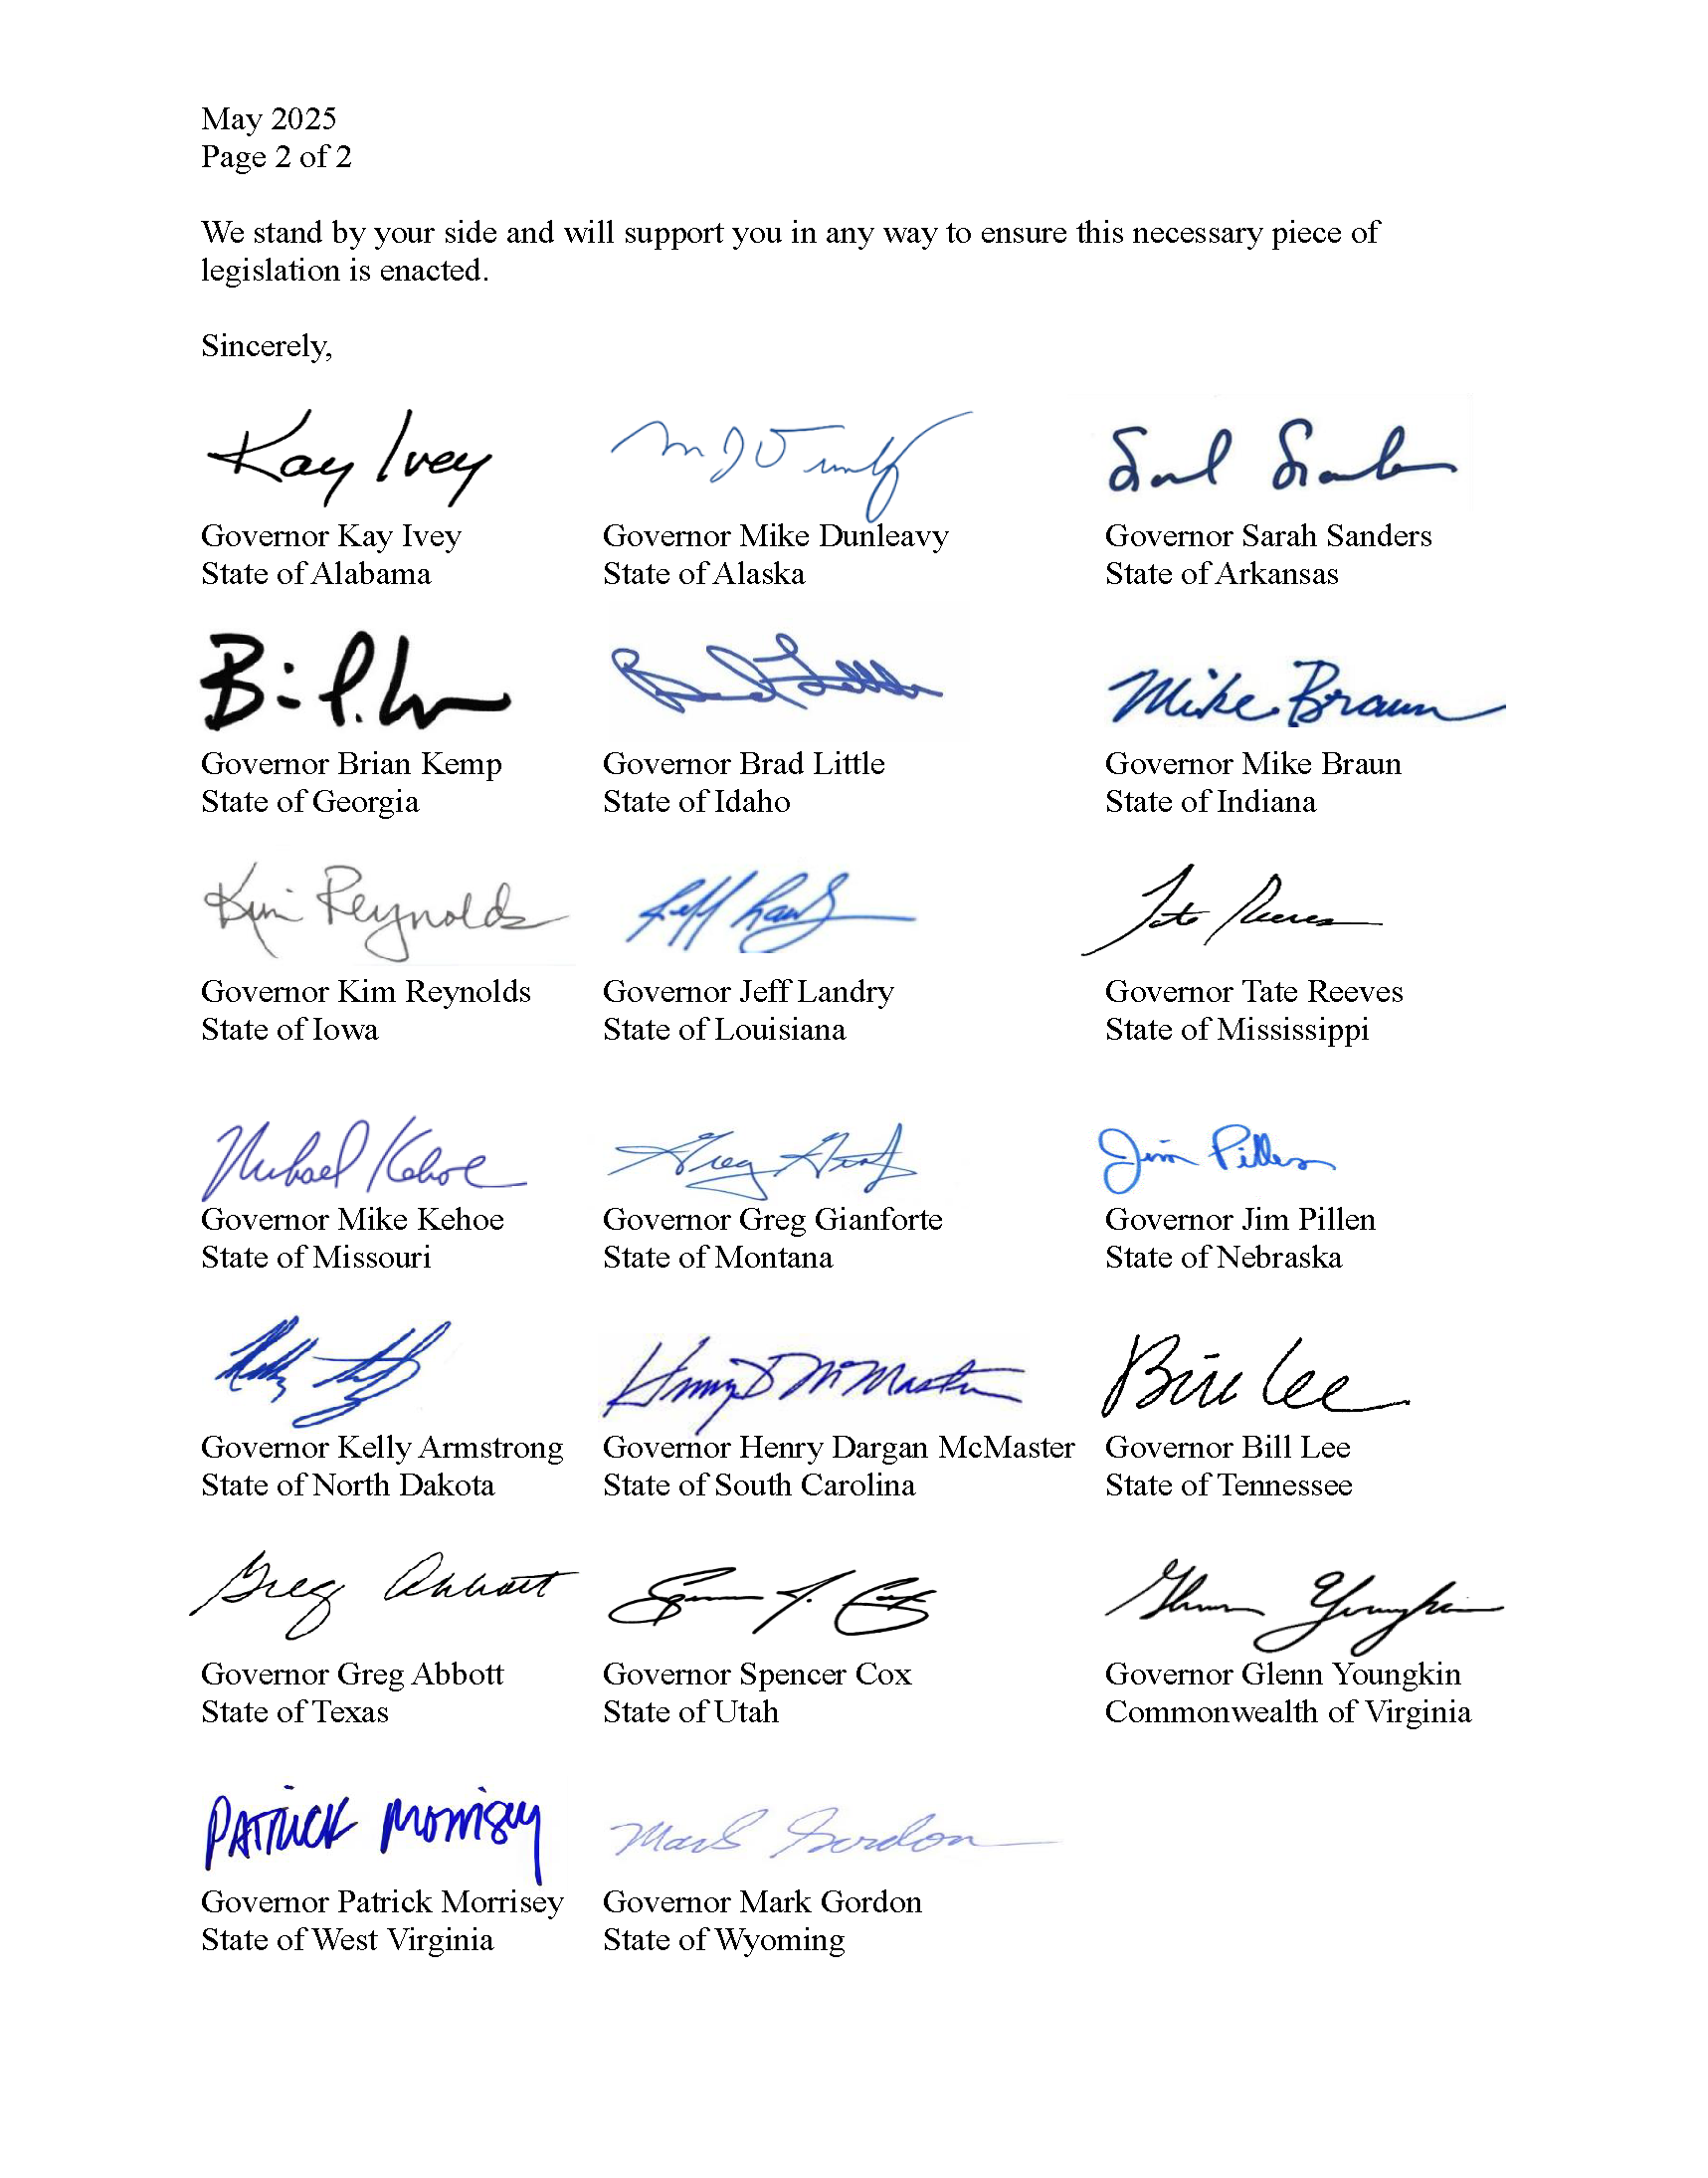 May 2025
Page 2 of 2
We stand by your side and will support you in any way to ensure this necessary piece of
legislation is enacted.
Sincerely,
Kay Ivey
Governor Kay Ivey
State of Alabama
Governor Mike Dunleavy
State of Alaska
Governor Sarah Sanders
State of Arkansas
Governor Brian Kemp
State of Georgia
Brad Little
Governor Brad Little
State of Idaho
Mike Braun
Governor Mike Braun
State of Indiana
Kim Reynolds
Governor Kim Reynolds
State of Iowa
Jeff Landry
Governor Jeff Landry
State of Louisiana
Tate Reeves
Governor Tate Reeves
State of Mississippi
Michael Kehoe
Governor Mike Kehoe
State of Missouri
Greg
Governor Greg Gianforte
State of Montana
Jim Pillen
Governor Jim Pillen
State of Nebraska
Governor Kelly Armstrong
State of North Dakota
Henry D McMaster
Governor Henry Dargan McMaster
State of South Carolina
Bill Lee
Governor Bill Lee
State of Tennessee
Greg Abbott
Governor Greg Abbott
State of Texas
Governor Spencer Cox
State of Utah
Glenn Youngkin
Governor Glenn Youngkin
Commonwealth of Virginia
Patrick Morrisey
Governor Patrick Morrisey
State of West Virginia
Mark Gordon
Governor Mark Gordon
State of Wyoming